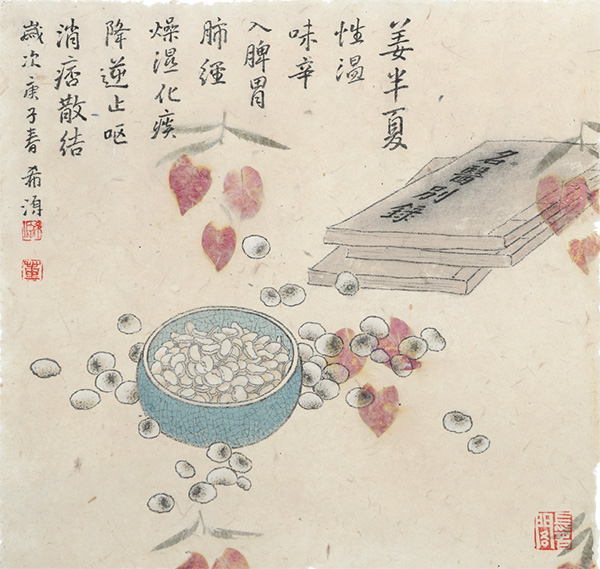 姜半夏
性温
味辛
入脾胃
肺經
燥湿化痰
降逆止呕
消痞散结
歲次庚子春 希
董
名醫別錄